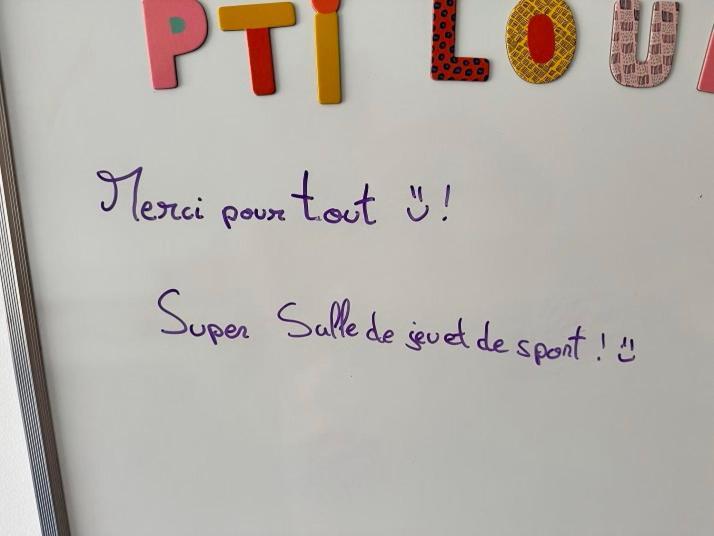 PTI LOU
Merci pour tout !
Super Salle de jeu et de sport !